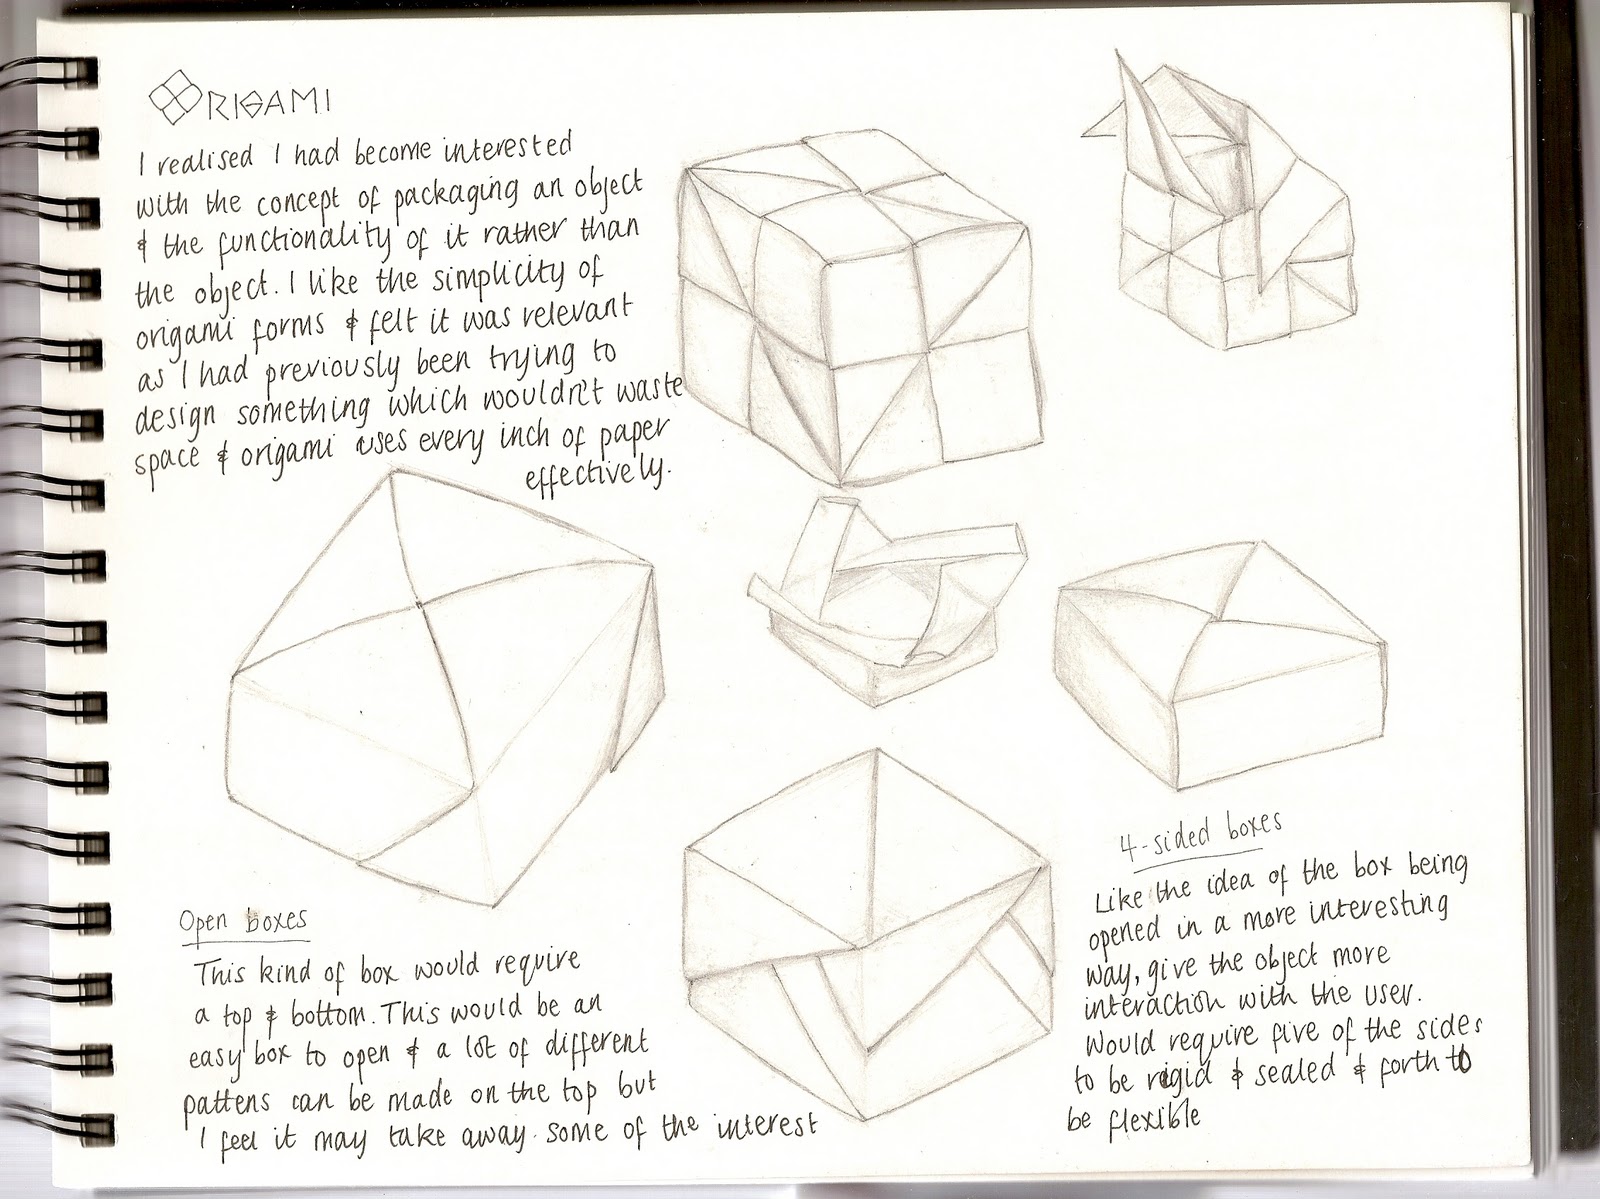 ORIGAMI
I realised I had become interested
with the concept of packaging an object
& the functionality of it rather than
the object. I like the simplicity of
origami forms & felt it was relevant
as I had previously been trying to
design something which wouldn't waste
space & origami uses every inch of paper
effectively.
Open boxes
This kind of box would require
a top & bottom. This would be an
easy box to open & a lot of different
pattens can be made on the top but
I feel it may take away some of the interest
4-sided boxes
Like the idea of the box being
opened in a more interesting
way, give the object more
interaction with the user.
Would require five of the sides
to be rigid & sealed & forth to
be flexible